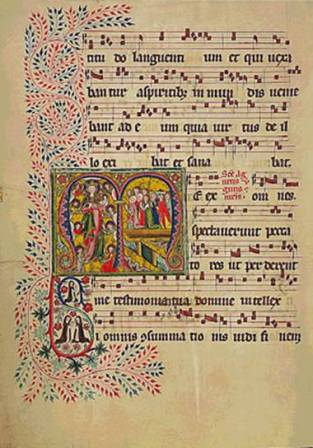 titu do languenti um et qui uexa
ban tur aspiritibz in mun dis uenie
bant ad e um quia uir tus de il
lo exi bat et sana bat.
ex om nes.
spectauerunt pecca
to res ut per derent
me testimonia tua domine intellex
i omnis ꝯsumma tio nis uidi fi nem